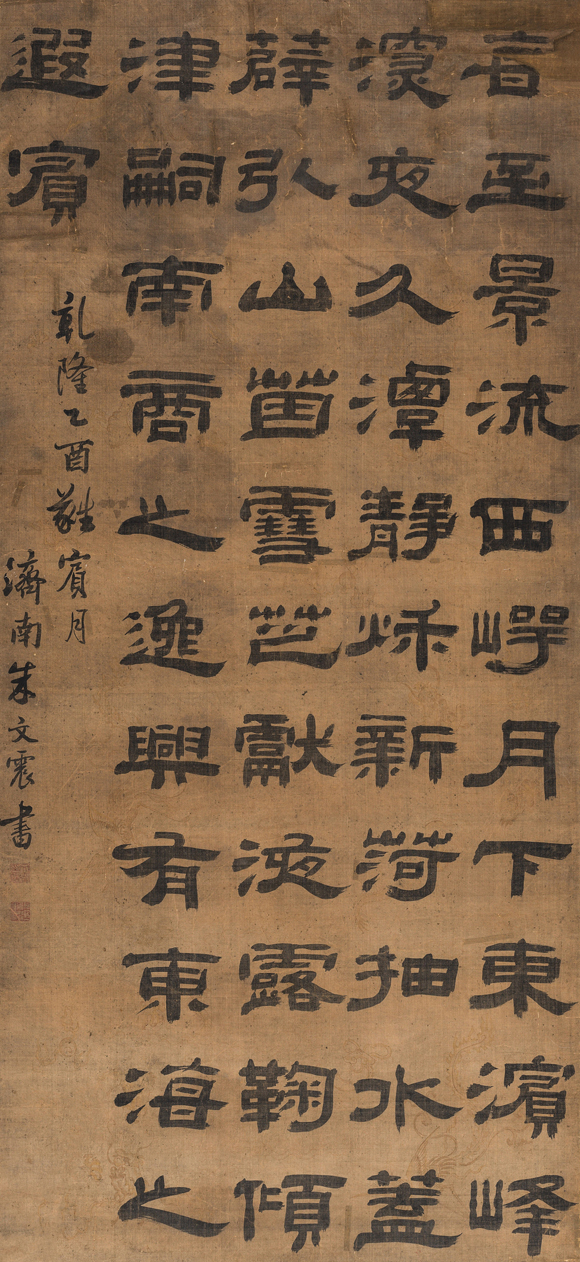 至景流西崿月下東濱峰
深夜久潭靜秌新荷抽水蓋
薜引山茵雪芭獻液露鞠傾
津嗣南商之逸興有東海之
遐賓
乾隆乙酉蕤賓月
濟南朱文震書